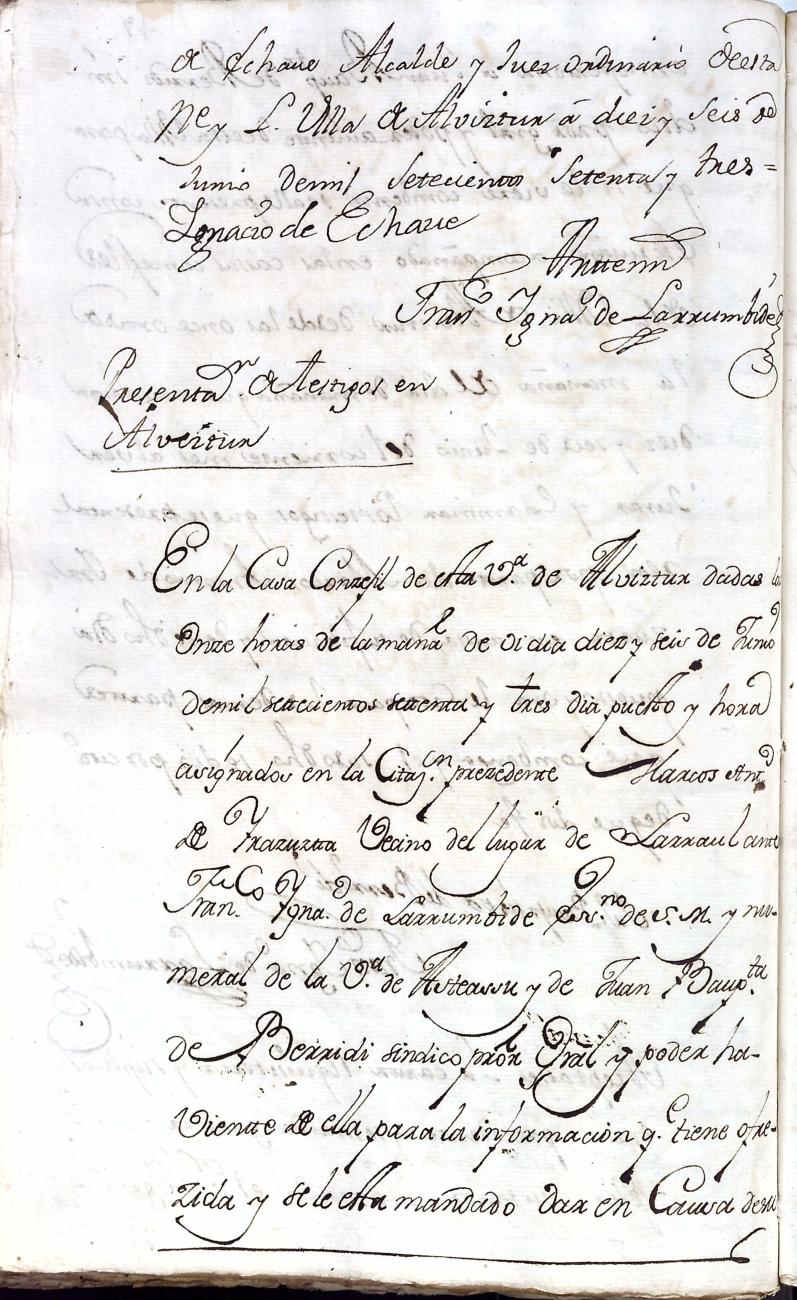 de Echave Alcalde y Juez ordinario de esta
Ne. y L. Villa de Alviztur à diez y seis de
Junio de mil setecientos setenta y tres=
Ignacio de Echave
Antte mi
Franco Ignao de Larrumbide
Presentan de testigos en
Alviztur
En la Casa Conzejil de esta Va. de Alviztur dadas la
Onze horas de la mañana de oi dia diez y seis de Junio
de mil settecientos settenta y tres dia puesto y hora
asignados en la Citazn. prezedente Marcos Anto
de Yrazuzta Vecino del lugar de Larraul ante
Franco Ygnao de Larrumbide Essno de S. M. y nu-
meral de la Va. de Asteassu y de Juan Baupta
de Berridi sindico pror Gral y poder ha-
viente de ella para la informacion q.e tiene ofre-
zida y se le esta mandado dar en Causa de su